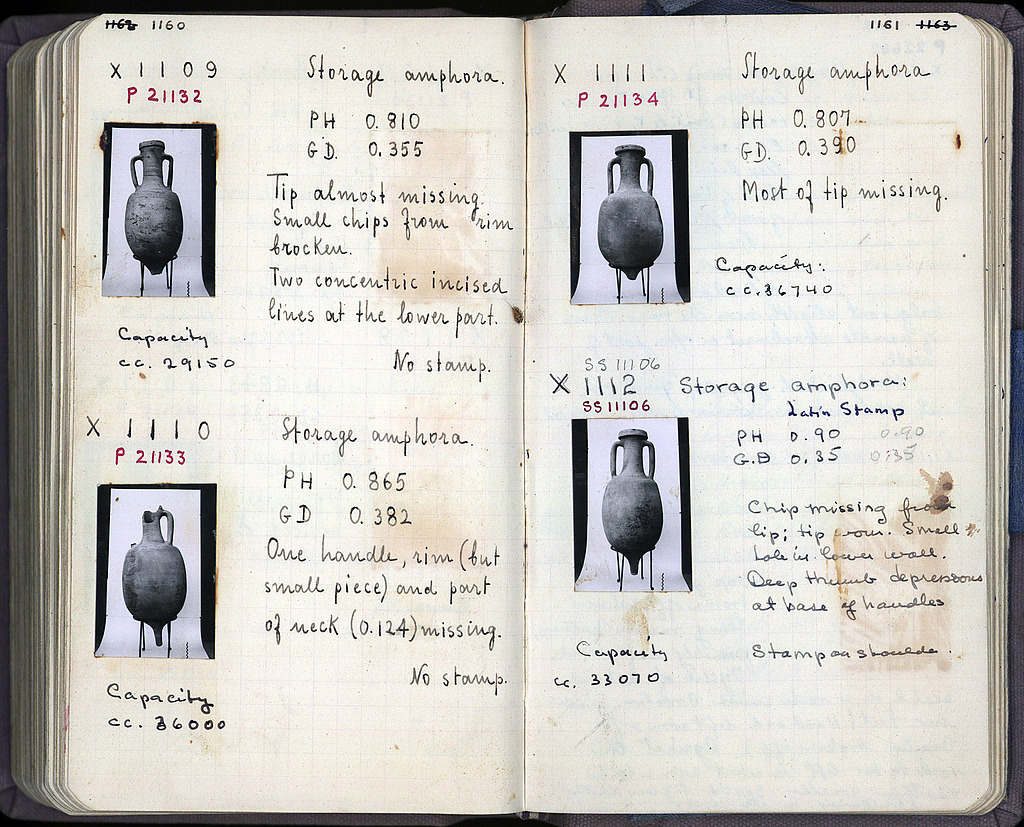 1162 1160
X 1109
P 21132
Storage amphora.
PH 0.810
GD. 0.355
Tip almost missing.
Small chips from rim
brocken.
Two concentric incised
lines at the lower part.
No stamp.
Capacity
cc. 29150
X 1110
P 21133
Storage amphora.
PH 0.865
GD 0.382
One handle, rim (but
small piece) and part
of neck (0.124) missing.
No stamp.
Capacity
cc. 36000
1161 1163
X 1111
P 21134
Storage amphora
PH 0.807
GD. 0.390
Most of tip missing.
Capacity:
cc. 36740
SS 11106
X 1112 Storage amphora:
SS 11106
Latin Stamp
PH 0.90 0.90
G.D 0.35 0.35
Chip missing from
lip; tip worn. Small
hole in lower wall.
Deep thumb depressions
at base of handles
Stamp on shoulder.
Capacity
cc. 33070